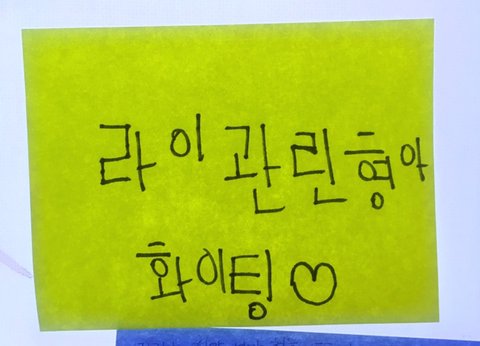 라이관린형아
화이팅♡